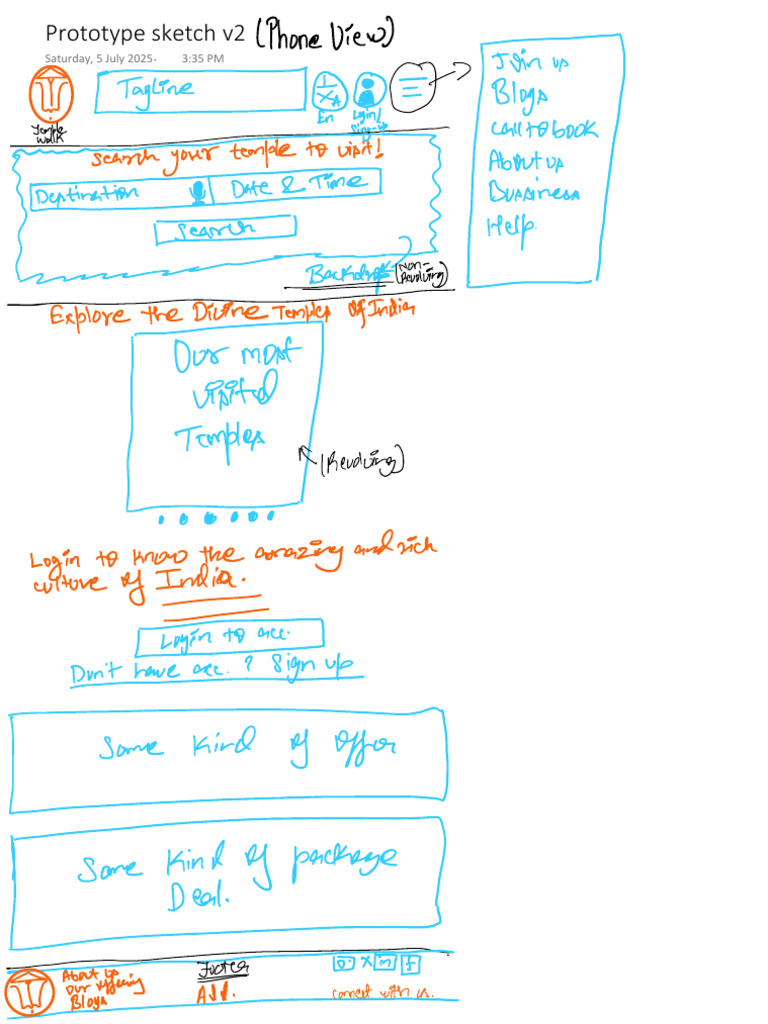 Prototype sketch v2 (Phone View)
Saturday, 5 July 2025 3:35 PM
Temple
Walk
Tagline
En
Login/
Sign-up
Join us
Blogs
Call to book
About us
Bussiness
Help.
Search your temple to visit!
Destination
Date & Time
Search
Backdrop
(Non-
Revolving)
Explore the Divine Temples of India
Our most
visited
Temples
(Revolving)
Login to know the amazing and rich
culture of India.
Login to acc.
Don't have acc.? Sign up
Some kind of offer
Some kind of package
Deal.
About us
our offering
Blogs
Footer
Add.
X in f
connect with us.